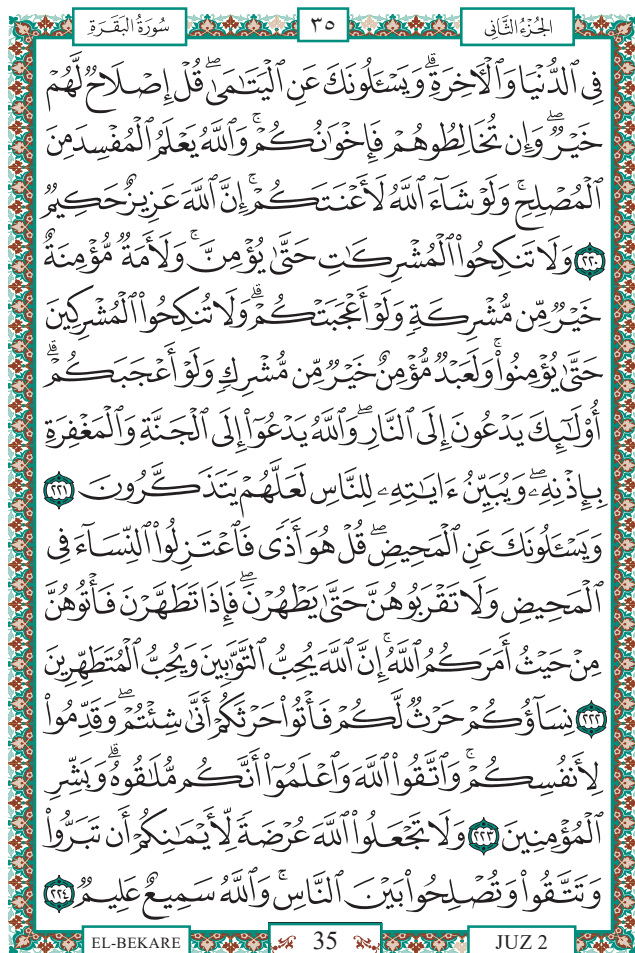 سُورَةُ الْبَقَرَةِ ٣٥ الْجُزْءُ الثَّانِي
فِي ٱلدُّنْيَا وَٱلْأَخِرَةِۗ وَيَسْـَٔلُونَكَ عَنِ ٱلْيَتَـٰمَىٰۖ قُلْ إِصْلَاحٌ لَّهُمْ
خَيْرٌۖ وَإِن تُخَالِطُوهُمْ فَإِخْوَٰنُكُمْۚ وَٱللَّهُ يَعْلَمُ ٱلْمُفْسِدَ مِنَ
ٱلْمُصْلِحِۚ وَلَوْ شَآءَ ٱللَّهُ لَأَعْنَتَكُمْۚ إِنَّ ٱللَّهَ عَزِيزٌ حَكِيمٌ
٢٢٠ وَلَا تَنكِحُوا۟ ٱلْمُشْرِكَـٰتِ حَتَّىٰ يُؤْمِنَّۚ وَلَأَمَةٌ مُّؤْمِنَةٌ
خَيْرٌ مِّن مُّشْرِكَةٍ وَلَوْ أَعْجَبَتْكُمْۗ وَلَا تُنكِحُوا۟ ٱلْمُشْرِكِينَ
حَتَّىٰ يُؤْمِنُوا۟ۚ وَلَعَبْدٌ مُّؤْمِنٌ خَيْرٌ مِّن مُّشْرِكٍ وَلَوْ أَعْجَبَكُمْۗ
أُو۟لَـٰٓئِكَ يَدْعُونَ إِلَى ٱلنَّارِۖ وَٱللَّهُ يَدْعُوٓا۟ إِلَى ٱلْجَنَّةِ وَٱلْمَغْفِرَةِ
بِإِذْنِهِۦۖ وَيُبَيِّنُ ءَايَـٰتِهِۦ لِلنَّاسِ لَعَلَّهُمْ يَتَذَكَّرُونَ ٢٢١
وَيَسْـَٔلُونَكَ عَنِ ٱلْمَحِيضِۖ قُلْ هُوَ أَذًى فَٱعْتَزِلُوا۟ ٱلنِّسَآءَ فِى
ٱلْمَحِيضِ وَلَا تَقْرَبُوهُنَّ حَتَّىٰ يَطْهُرْنَۖ فَإِذَا تَطَهَّرْنَ فَأْتُوهُنَّ
مِنْ حَيْثُ أَمَرَكُمُ ٱللَّهُۚ إِنَّ ٱللَّهَ يُحِبُّ ٱلتَّوَّٰبِينَ وَيُحِبُّ ٱلْمُتَطَهِّرِينَ
٢٢٢ نِسَآؤُكُمْ حَرْثٌ لَّكُمْ فَأْتُوا۟ حَرْثَكُمْ أَنَّىٰ شِئْتُمْۖ وَقَدِّمُوا۟
لِأَنفُسِكُمْۚ وَٱتَّقُوا۟ ٱللَّهَ وَٱعْلَمُوٓا۟ أَنَّكُم مُّلَـٰقُوهُۗ وَبَشِّرِ
ٱلْمُؤْمِنِينَ ٢٢٣ وَلَا تَجْعَلُوا۟ ٱللَّهَ عُرْضَةً لِّأَيْمَـٰنِكُمْ أَن تَبَرُّوا۟
وَتَتَّقُوا۟ وَتُصْلِحُوا۟ بَيْنَ ٱلنَّاسِۚ وَٱللَّهُ سَمِيعٌ عَلِيمٌ ٢٢٤
EL-BEKARE 35 JUZ 2